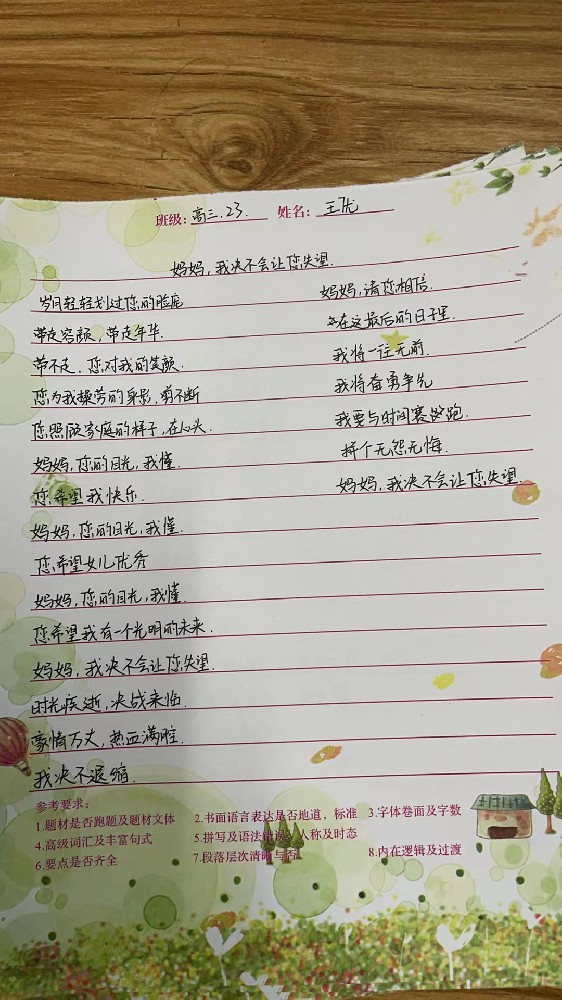 班级:高三.23. 姓名:王优
妈妈,我决不会让您失望.
岁月轻轻划过您的脸庞
带走容颜,带走年华.
带不走.您对我的笑颜.
您为我操劳的身影,剪不断
您照顾家庭的样子,在心头.
妈妈,您的目光,我懂.
您希望我快乐.
妈妈,您的目光,我懂.
您希望女儿优秀
妈妈,您的目光,我懂.
您希望我有一个光明的未来.
妈妈,我决不会让您失望.
时光疾逝,决战来临.
豪情万丈,热血满腔.
我决不退缩.
妈妈,请您相信.
在这最后的日子里.
我将一往无前.
我将奋勇争先
我要与时间赛跑.
拼个无怨无悔.
妈妈,我决不会让您失望.
参考要求:
1.题材是否跑题及题材文体 2.书面语言表达是否地道,标准 3.字体卷面及字数
4.高级词汇及丰富句式 5.拼写及语法错误,人称及时态
6.要点是否齐全 7.段落层次清晰与否 8.内在逻辑及过渡